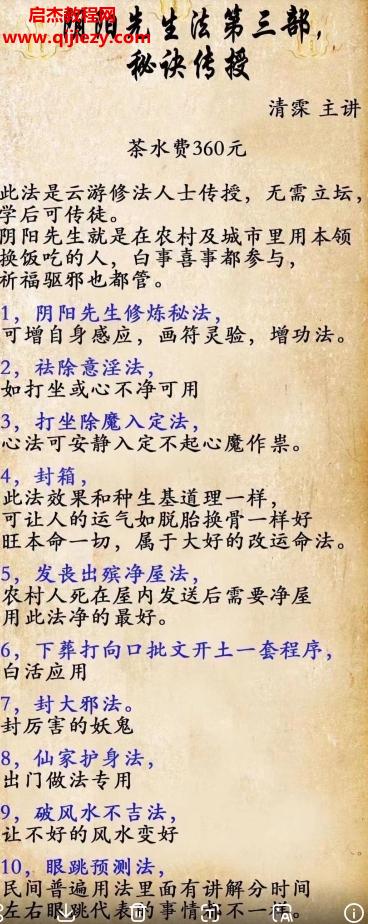 启杰教程网
www.qijiezy.com
阴阳先生法第三部，
秘诀传授
清霂 主讲
茶水费360元
此法是云游修法人士传授，无需立坛，
学后可传徒。
阴阳先生就是在农村及城市里用本领
换饭吃的人，白事喜事都参与，
祈福驱邪也都管。
1，阴阳先生修炼秘法，
可增自身感应，画符灵验，增功法。
2，祛除意淫法，
如打坐或心不净可用
3，打坐除魔入定法，
心法可安静入定不起心魔作祟。
4，封箱，
此法效果和种生基道理一样，
可让人的运气如脱胎换骨一样好
旺本命一切，属于大好的改运命法。
5，发丧出殡净屋法，
农村人死在屋内发送后需要净屋
用此法净的最好。
6，下葬打向口批文开土一套程序，
白活应用
7，封大邪法。
封厉害的妖鬼
8，仙家护身法，
出门做法专用
9，破风水不吉法，
让不好的风水变好
10，眼跳预测法，
民间普遍用法里面有讲解分时间
左右眼跳代表的事情都不一样。